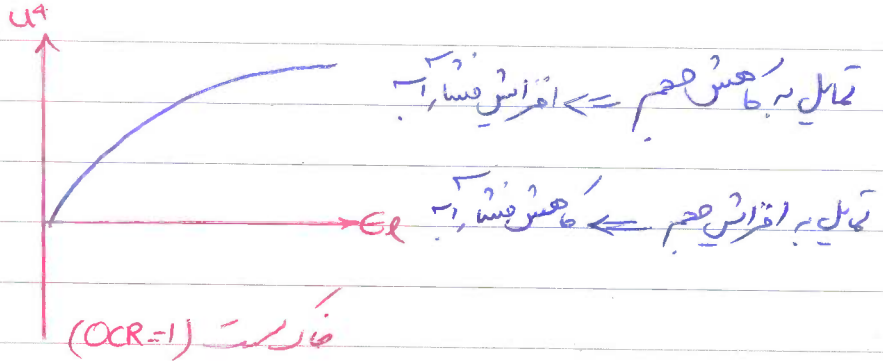 u
تمایل به کاهش حجم => افزایش فشار آب
تمایل به افزایش حجم => کاهش فشار آب
خاک سست (OCR=1)